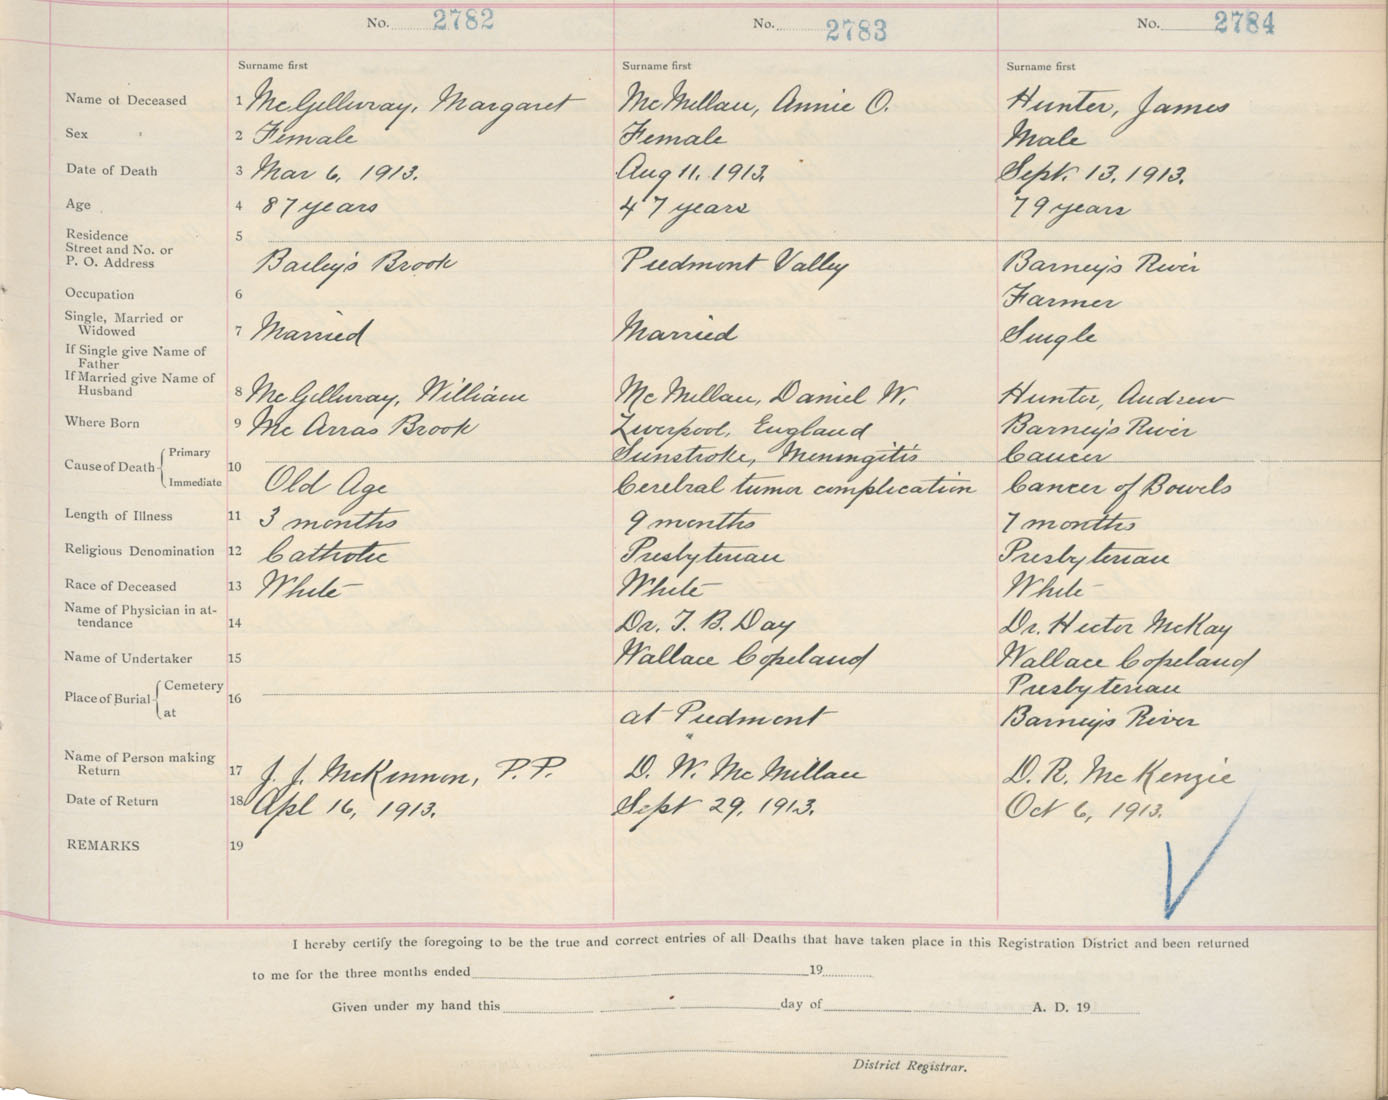 No. 2782 No. 2783 No. 2784
Surname first Surname first Surname first
Name of Deceased 1 McGillivray, Margaret McMillan, Annie O. Hunter, James
Sex 2 Female Female Male
Date of Death 3 Mar 6, 1913. Aug 11, 1913. Sept. 13, 1913.
Age 4 87 years 47 years 79 years
Residence 5
Street and No. or
P. O. Address Bailey's Brook Piedmont Valley Barney's River
Occupation 6 Farmer
Single, Married or
Widowed 7 Married Married Single
If Single give Name of
Father
If Married give Name of
Husband 8 McGillivray, William McMillan, Daniel W. Hunter, Andrew
Where Born 9 McArras Brook Liverpool, England Barney's River
Cause of Death Primary 10 Sunstroke, Meningitis Cancer
Immediate Old Age Cerebral tumor complication Cancer of Bowels
Length of Illness 11 3 months 9 months 7 months
Religious Denomination 12 Catholic Presbyterian Presbyterian
Race of Deceased 13 White White White
Name of Physician in at-
tendance 14 Dr. T. B. Day Dr. Hector McKay
Name of Undertaker 15 Wallace Copeland Wallace Copeland
Place of Burial Cemetery 16 Presbyterian
at at Piedmont Barney's River
Name of Person making
Return 17 J. J. McKinnon, P.P. D. W. McMillan D. R. McKenzie
Date of Return 18 Apl 16, 1913. Sept 29, 1913. Oct 6, 1913.
REMARKS 19
I hereby certify the foregoing to be the true and correct entries of all Deaths that have taken place in this Registration District and been returned
to me for the three months ended 19
Given under my hand this day of A. D. 19
District Registrar.